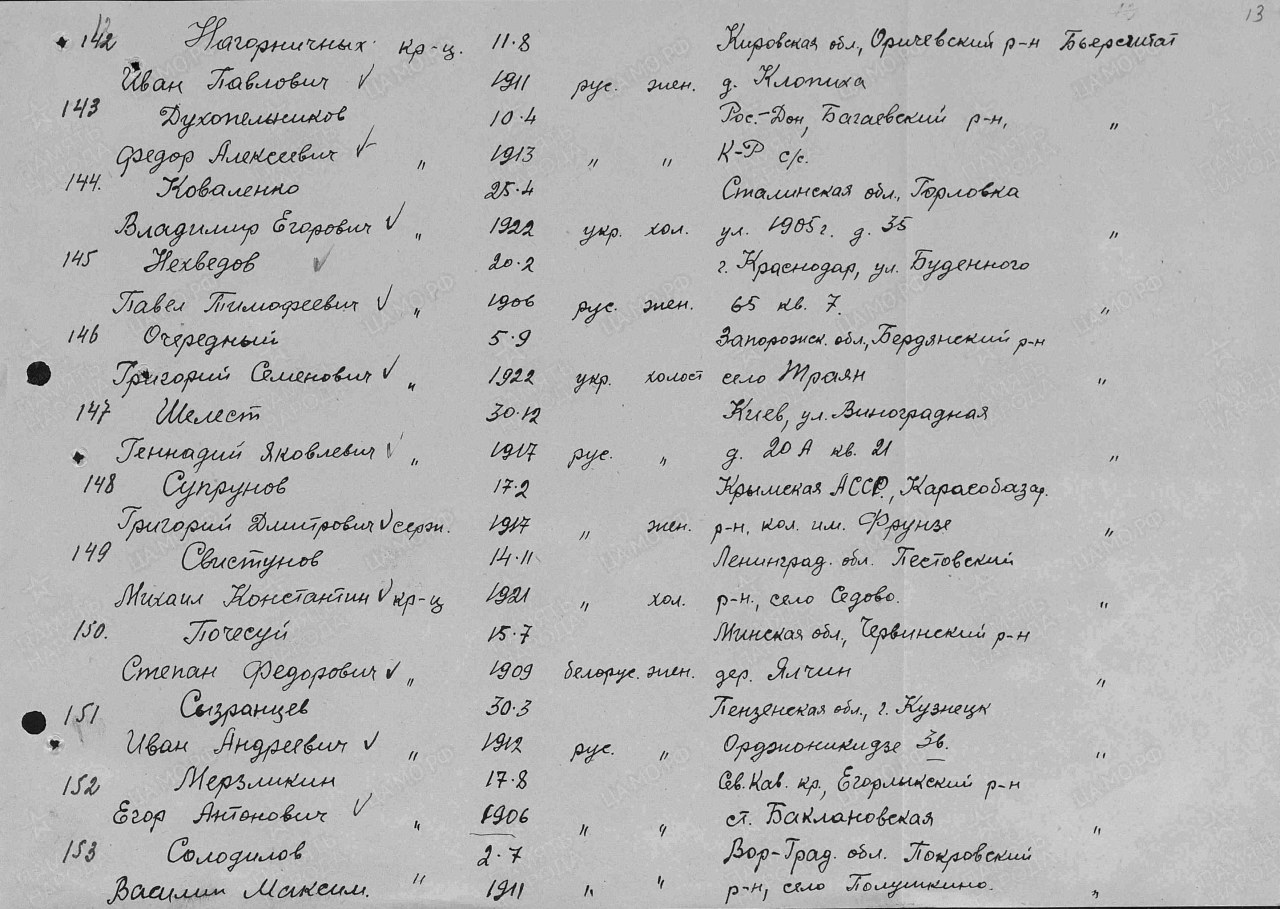 13
142 Нагорничных кр-ц. 11.8 Кировская обл., Оричевский р-н Бьерстат
Иван Павлович ✓ 1911 рус. жен. д. Клопиха
143 Духопельников 10.4 Рос.-Дон, Багаевский р-н, „
Федор Алексеевич ✓ „ 1913 „ „ К-Р с/с.
144. Коваленко 25.4 Сталинская обл., Горловка
Владимир Егорович ✓ „ 1922 укр. хол. ул. 1905 г. д. 35 „
145 Нехведов ✓ 20.2 г. Краснодар, ул. Буденного
Павел Тимофеевич ✓ „ 1906 рус. жен. 65 кв. 7. „
146 Очередный 5.9 Запорожск. обл., Бердянский р-н
Григорий Семенович ✓ „ 1922 укр. холост село Траян „
147 Шелест 30.12 Киев, ул. Виноградная
Геннадий Яковлевич ✓ „ 1917 рус. „ д. 20 А кв. 21 „
148 Супрунов 17.2 Крымская АССР., Карасобазар.
Григорий Дмитрович ✓ серж. 1917 „ жен. р-н, кол. им. Фрунзе „
149 Свистунов 14.11 Ленинград. обл. Пестовский
Михаил Константин ✓ кр-ц 1921 „ хол. р-н., село Седово. „
150. Почесуй 15.7 Минская обл., Червинский р-н
Степан Федорович ✓ „ 1909 белорус. жен. дер. Ялчин „
151 Сызранцев 30.3 Пензенская обл., г. Кузнецк
Иван Андреевич ✓ „ 1912 рус. „ Орджоникидзе 3в. „
152 Мерзликин 17.8 Св. Кав. кр., Егорлыкский р-н
Егор Антонович ✓ „ 1906 „ „ ст. Баклановская „
153 Солодилов 2.7 Вор-Град. обл. Покровский
Василии Максим. „ 1911 „ „ р-н, село Полушкино. „